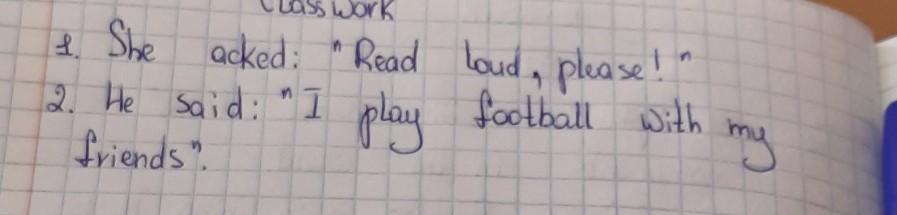 Classwork
1. She acked: "Read loud, please!"
2. He said: "I play football with my
friends".